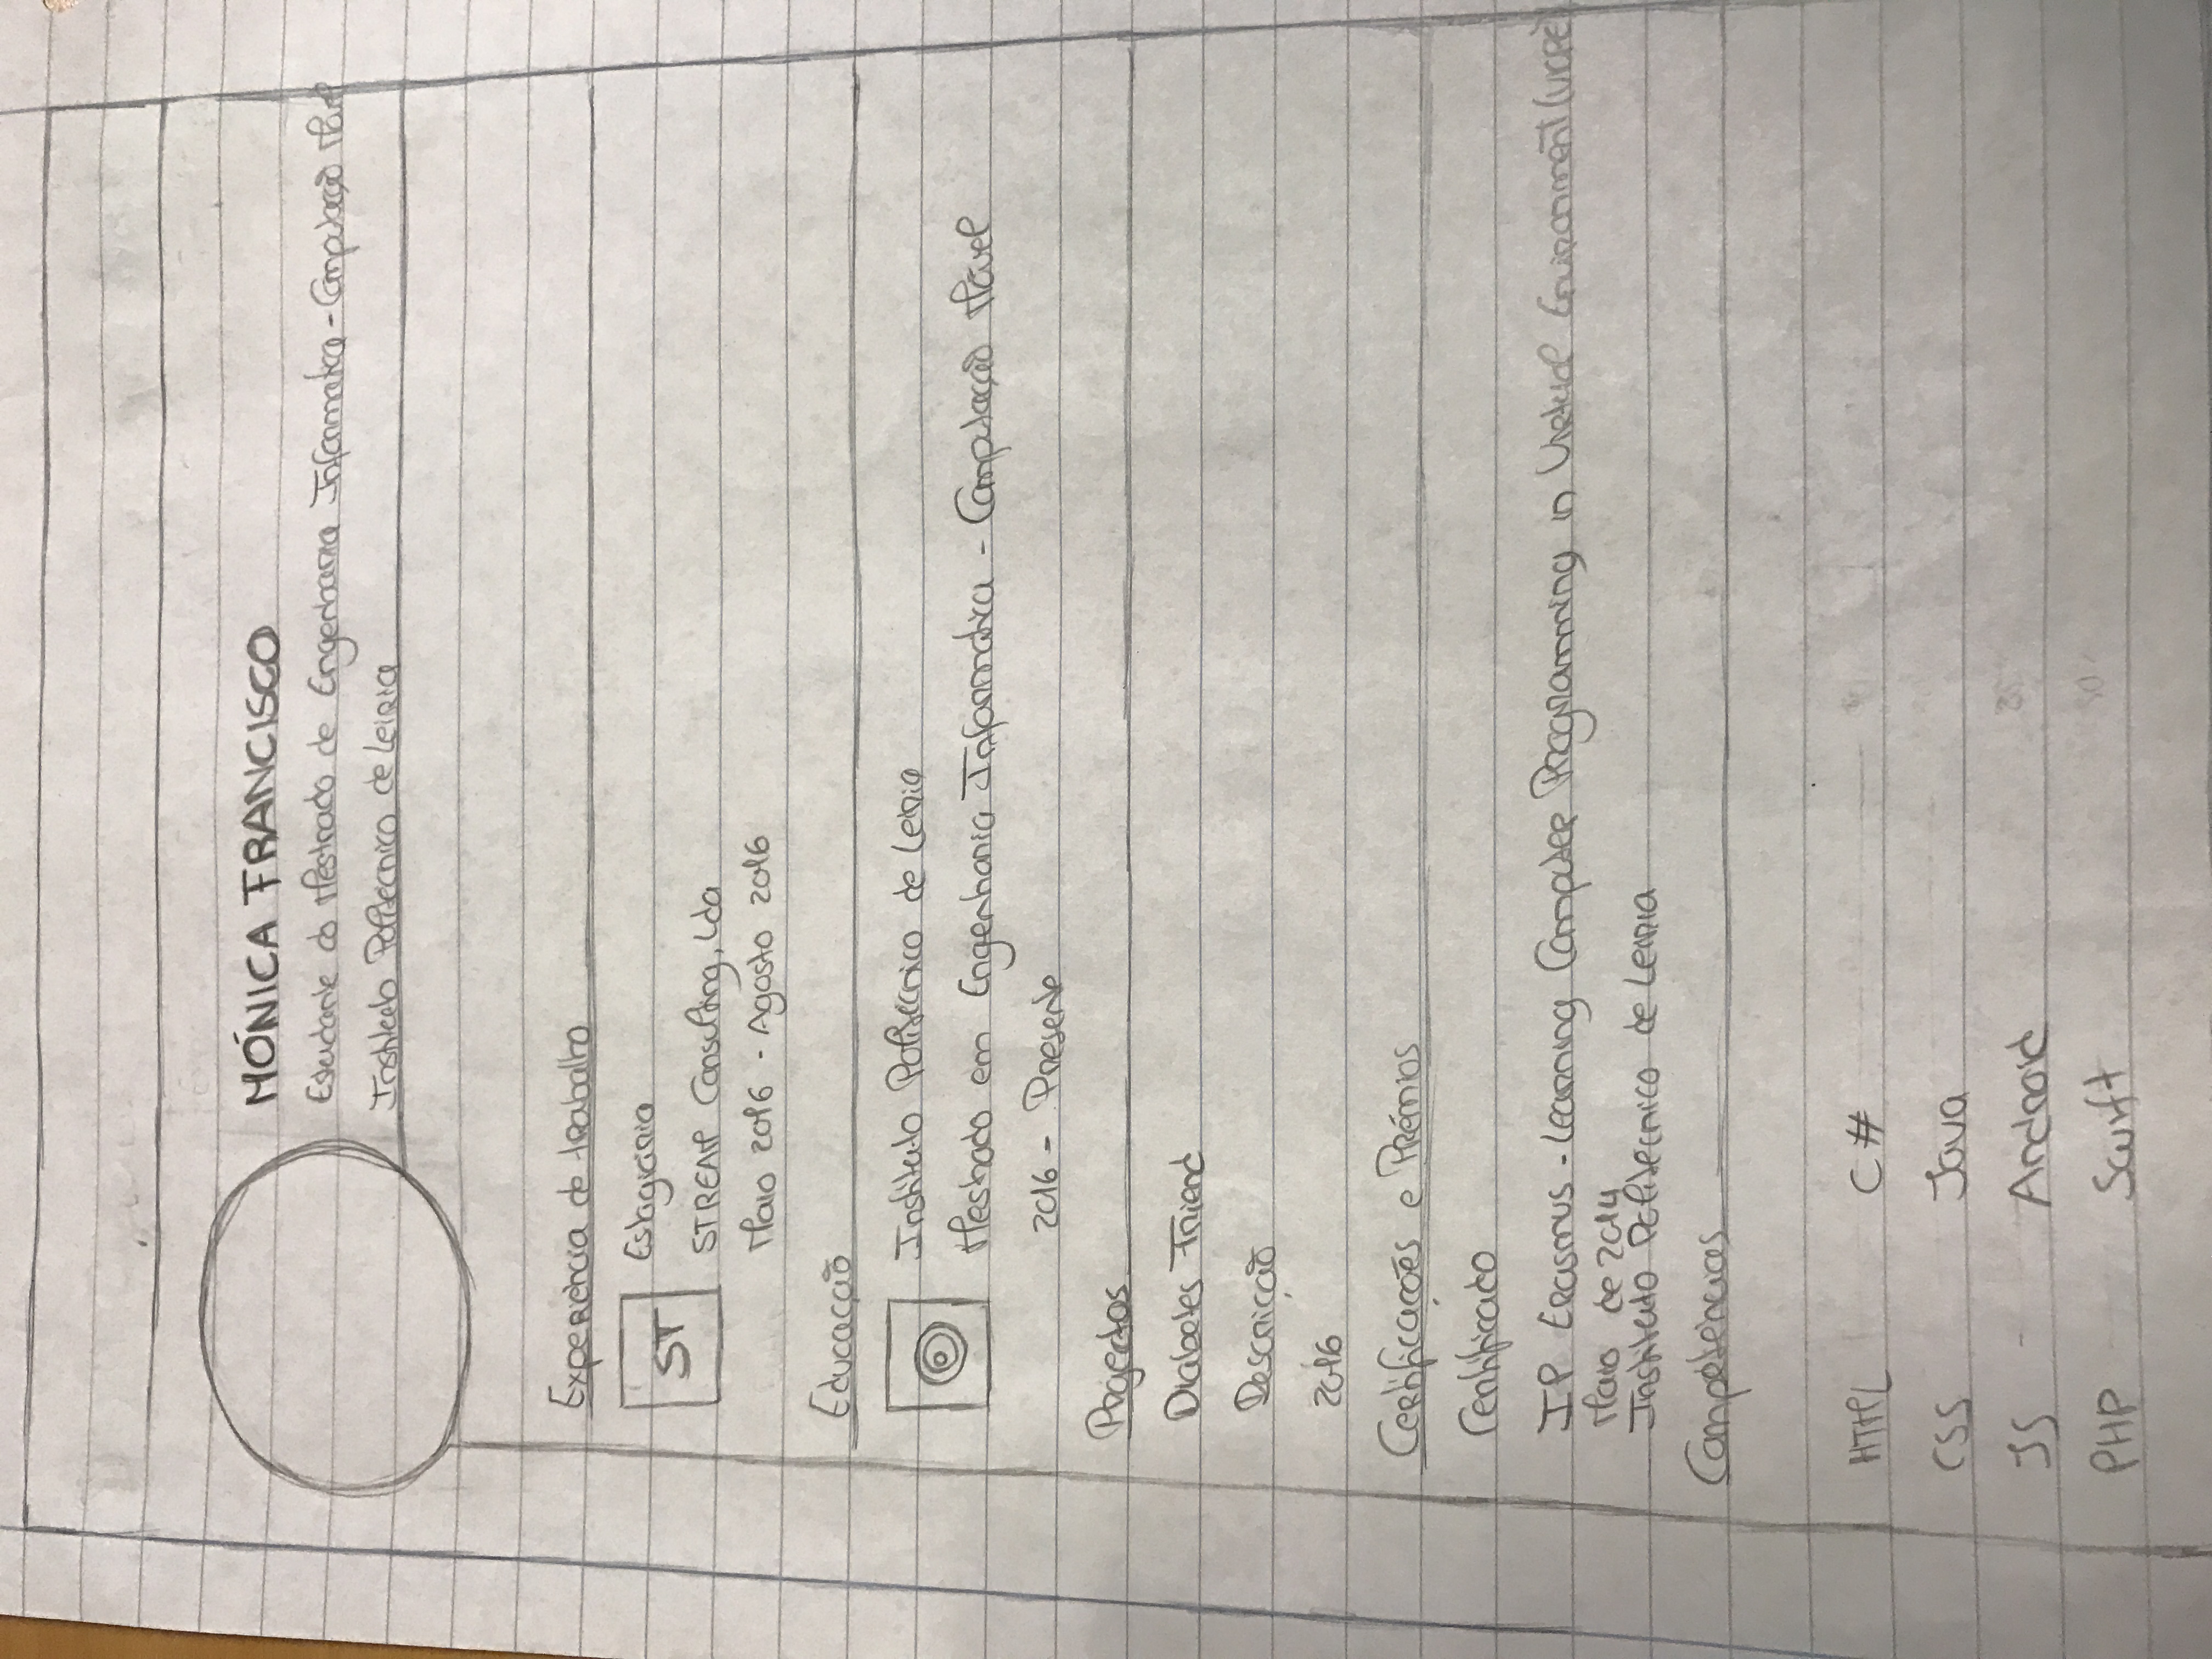 MÓNICA FRANCISCO
Estudante do Mestrado de Engenharia Informatica - Computação Móvel
Instituto Politecnico de Leiria
Experiência de trabalho
ST
Estagiária
STREAM Consulting, Lda
Maio 2016 - Agosto 2016
Educação
Instituto Politécnico de Leiria
Mestrado em Engenharia Informática - Computação Móvel
2016 - Presente
Projectos
Diabetes Friend
Descrição
2016
Certificações e Prémios
Certificado
IP Erasmus - Learning Computer Programming in Virtual Environment
Maio de 2014
Instituto Politécnico de Leiria
Competências
HTML C#
CSS Java
JS Android
PHP Swift